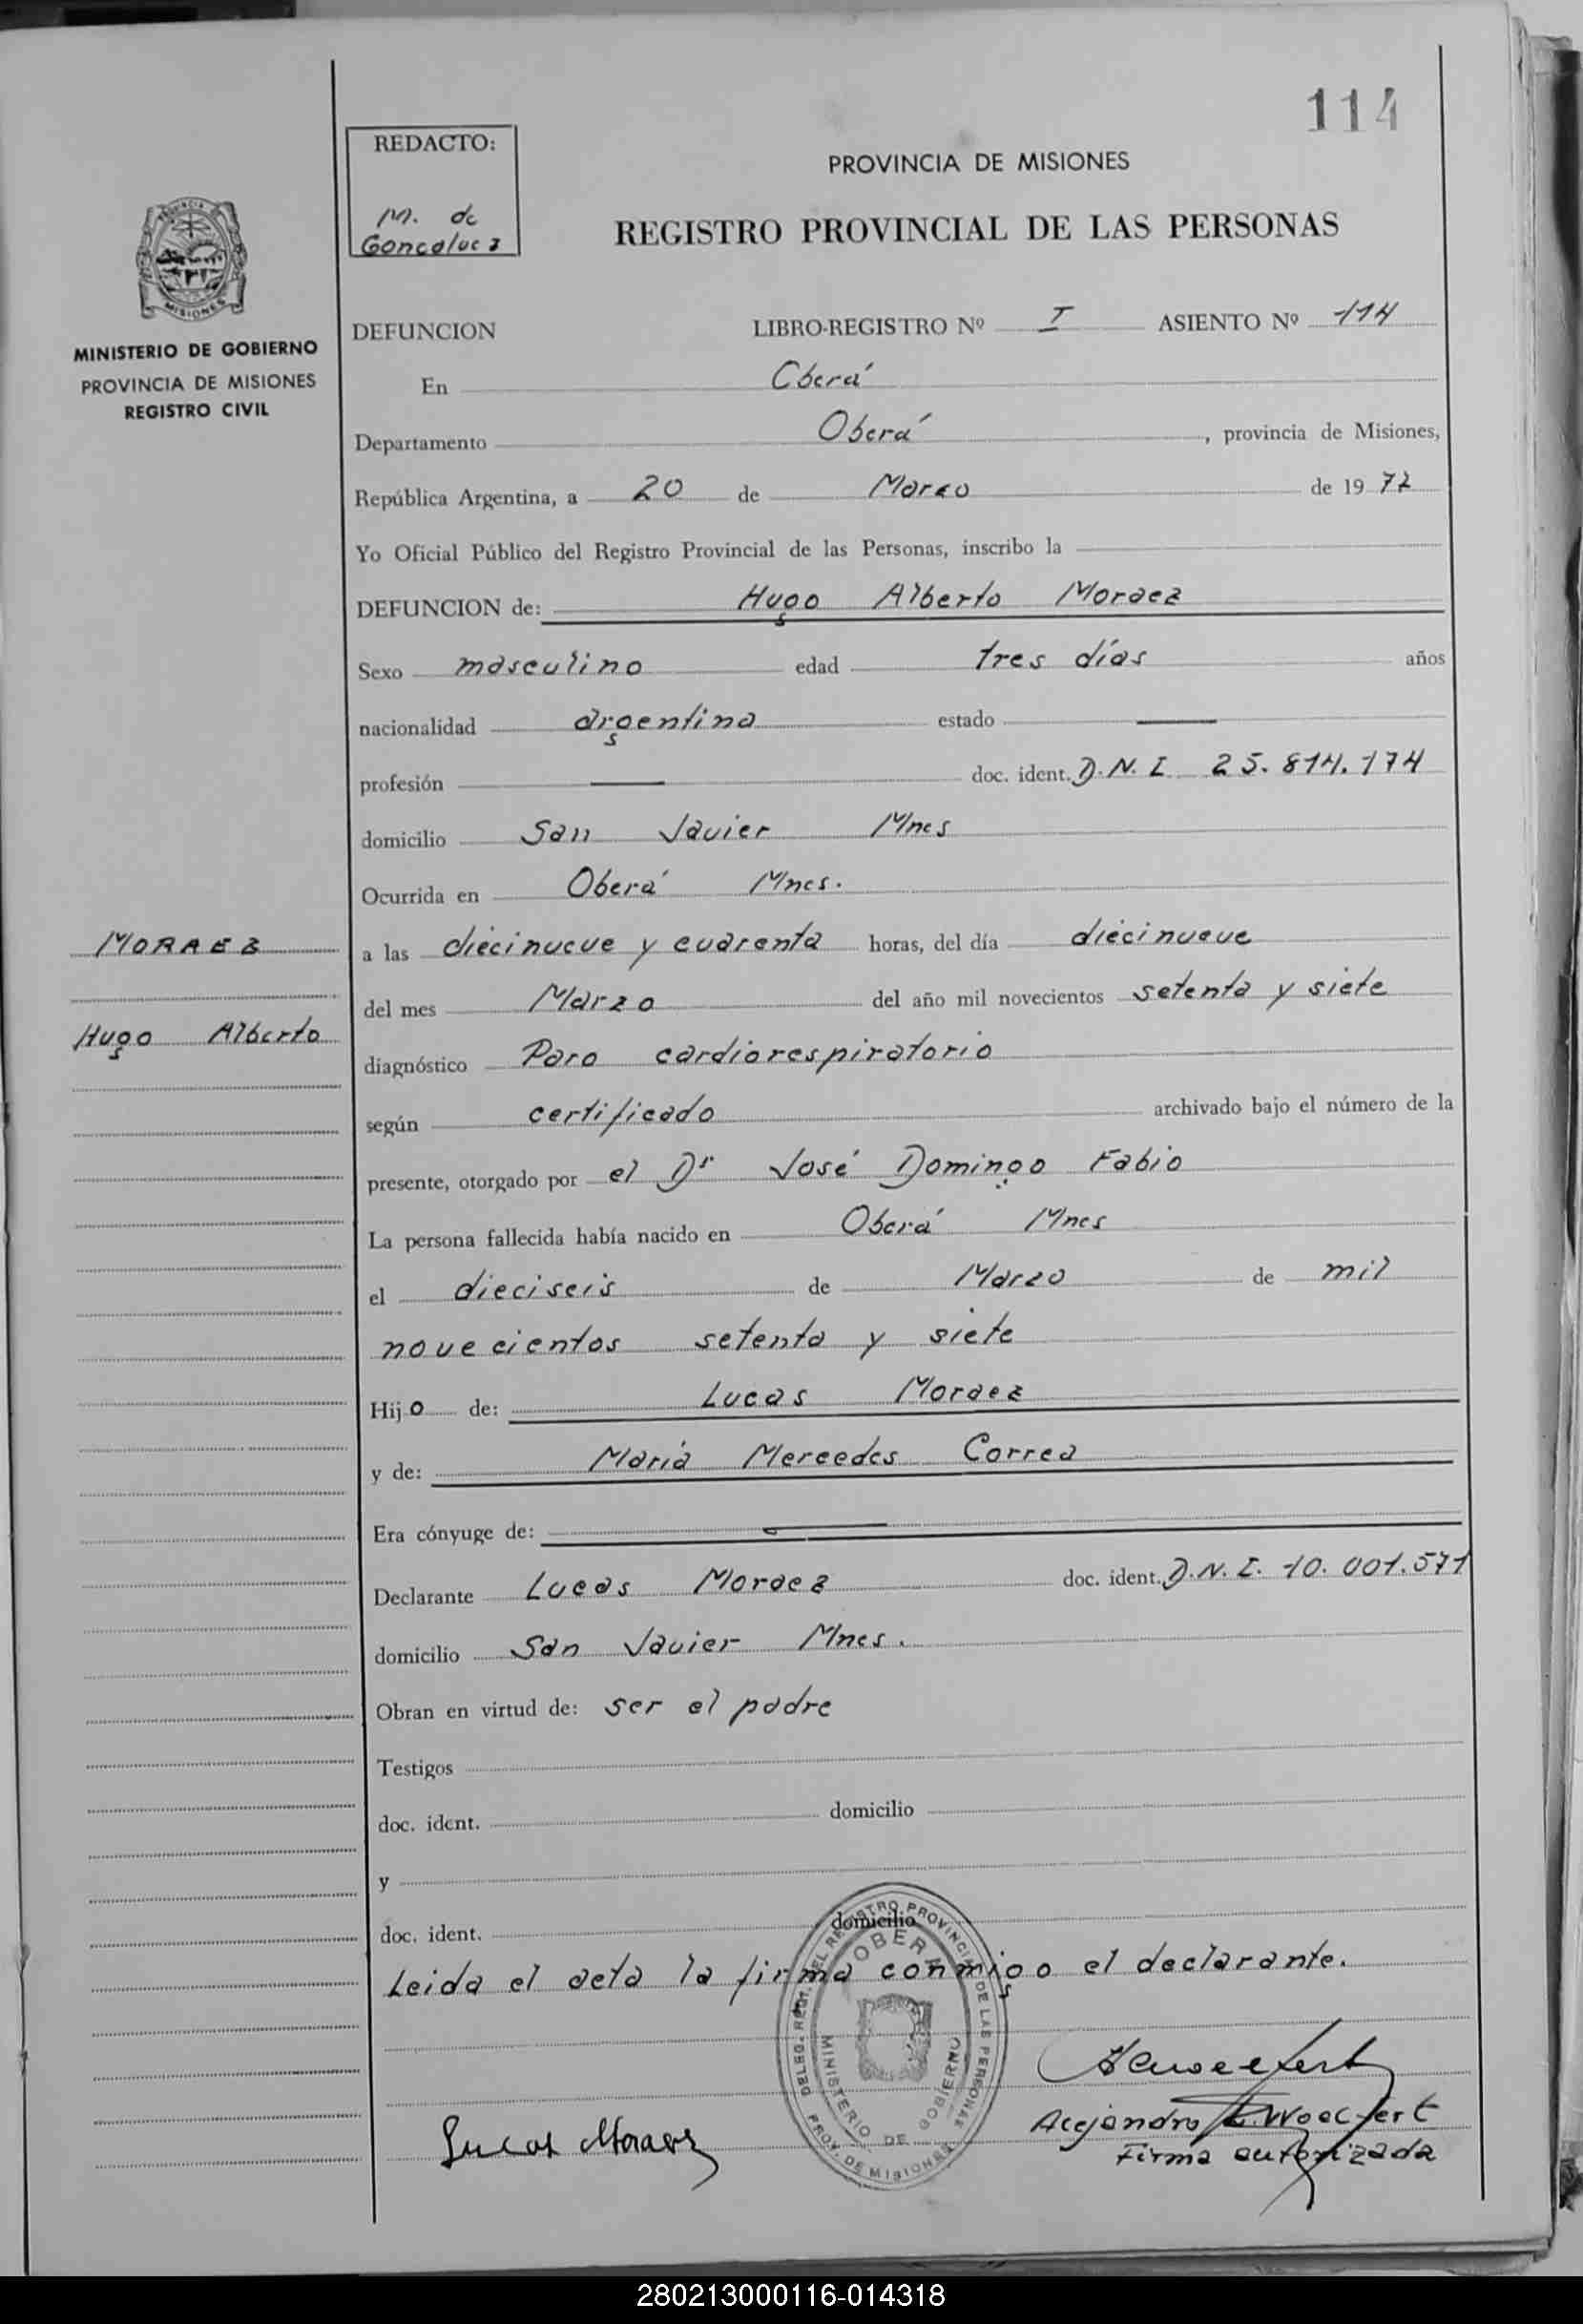 114
REDACTO:
M. de
Goncalvez
PROVINCIA DE MISIONES
REGISTRO PROVINCIAL DE LAS PERSONAS
MISIONES
MINISTERIO DE GOBIERNO
PROVINCIA DE MISIONES
REGISTRO CIVIL
DEFUNCION LIBRO-REGISTRO Nº I ASIENTO Nº 114
En Oberá
Departamento Oberá, provincia de Misiones,
República Argentina, a 20 de Marzo de 19 77
Yo Oficial Público del Registro Provincial de las Personas, inscribo la
DEFUNCION de: Hugo Alberto Moraez
Sexo masculino edad tres días años
nacionalidad argentina estado —
profesión — doc. ident. D.N.I. 25.814.174
domicilio San Javier Mnes
Ocurrida en Oberá Mnes.
MORAEZ
Hugo Alberto
a las diecinueve y cuarenta horas, del día diecinueve
del mes Marzo del año mil novecientos setenta y siete
diagnóstico Paro cardiorespiratorio
según certificado archivado bajo el número de la
presente, otorgado por el Dr José Domingo Fabio
La persona fallecida había nacido en Oberá Mnes
el dieciseis de Marzo de mil
novecientos setenta y siete
Hijo de: Lucas Moraez
y de: María Mercedes Correa
Era cónyuge de: —
Declarante Lucas Moraez doc. ident. D.N.I. 10.001.571
domicilio San Javier Mnes.
Obran en virtud de: ser el padre
Testigos
doc. ident. domicilio
y
doc. ident. domicilio
Leida el acta la firma conmigo el declarante.
DELEG. REGI. DEL REGISTRO PROVINCIAL DE LAS PERSONAS
OBERA
MINISTERIO DE GOBIERNO
PROV. DE MISIONES
Lucas Moraez
Firma autorizada
280213000116-014318